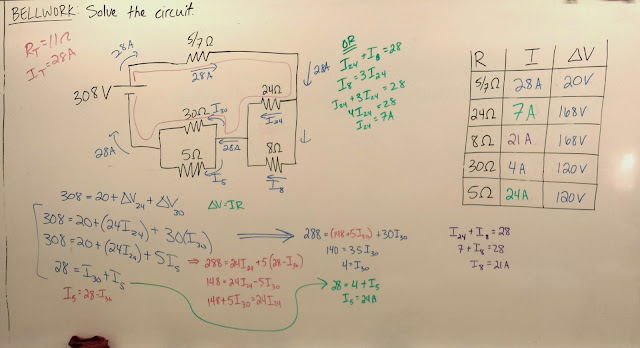 BELLWORK: Solve the circuit.
R_T = 11Ω
I_T = 28A
28A
5/7Ω
28A
28A
308V
30Ω
I_30
24Ω
I_24
28A
28A
5Ω
I_5
8Ω
I_8
OR
I_24 + I_8 = 28
I_8 = 3I_24
I_24 + 3I_24 = 28
4I_24 = 28
I_24 = 7A
R I ΔV
5/7Ω 28A 20V
24Ω 7A 168V
8Ω 21A 168V
30Ω 4A 120V
5Ω 24A 120V
308 = 20 + ΔV_24 + ΔV_30
ΔV = IR
308 = 20 + (24I_24) + 30(I_30)
308 = 20 + (24I_24) + 5I_5
28 = I_30 + I_5
I_5 = 28 - I_30
⇒ 288 = 24I_24 + 5(28 - I_30)
148 = 24I_24 - 5I_30
148 + 5I_30 = 24I_24
288 = (148 + 5I_30) + 30I_30
140 = 35I_30
4 = I_30
28 = 4 + I_5
I_5 = 24A
I_24 + I_8 = 28
7 + I_8 = 28
I_8 = 21A